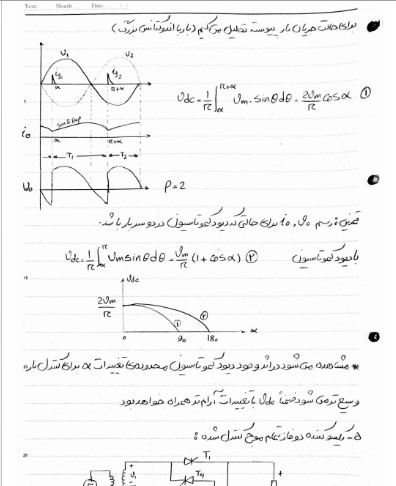 Year Month Date
برای حالت جریان بار پیوسته تحلیل می‌کنیم (بار با اندوکتانس بزرگ)
υ₁ υ₂
ig₁ ig₂
α π+α
Vdc = 1/π ∫_α^{π+α} Vm · sinθdθ = 2Vm/π cosα ①
io sin و Exp
α π+α
T₁ T₂
υo P=2
تمرین: رسم υo, io برای حالتی که دیود کموتاسیون در دو سر بار باشد.
با دیود کموتاسیون Vdc = 1/π ∫_α^π Vm sinθdθ = Vm/π (1+cosα) ②
Vdc
2Vm/π
① ②
0 90 180 α
* مشاهده می‌شود در اثر وجود دیود کموتاسیون محدوده‌ی تغییرات α برای کنترل بار
وسیع‌تر می‌شود ضمناً Vdc با تغییرات آرام‌تر همراه خواهد بود
۵- یکسو کننده دو فاز تمام موج کنترل شده:
T₁
T₄
υ₁
+